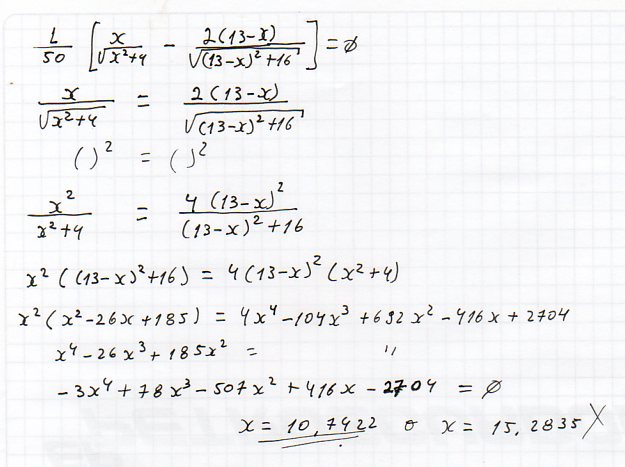 1/50 [ x/√(x²+4) - 2(13-x)/√((13-x)²+16) ] = ∅
x/√(x²+4) = 2(13-x)/√((13-x)²+16)
( )² = ( )²
x²/(x²+4) = 4(13-x)²/((13-x)²+16)
x² ((13-x)²+16) = 4(13-x)² (x²+4)
x² (x²-26x+185) = 4x⁴-104x³+692x²-416x+2704
x⁴-26x³+185x² = "
-3x⁴+78x³-507x²+416x-2704 = ∅
x = 10,7422 o x = 15,2835 X